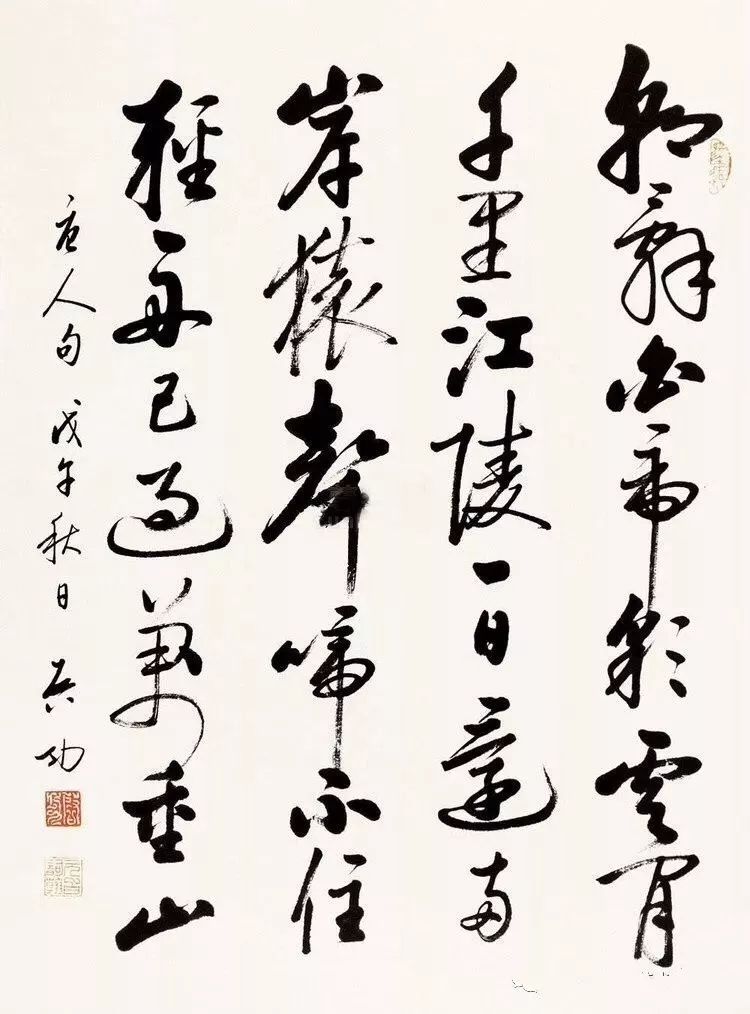 朝辭白帝彩雲間
千里江陵一日還兩
岸猿聲啼不住
輕舟已過萬重山
唐人句 戊午秋日 启功